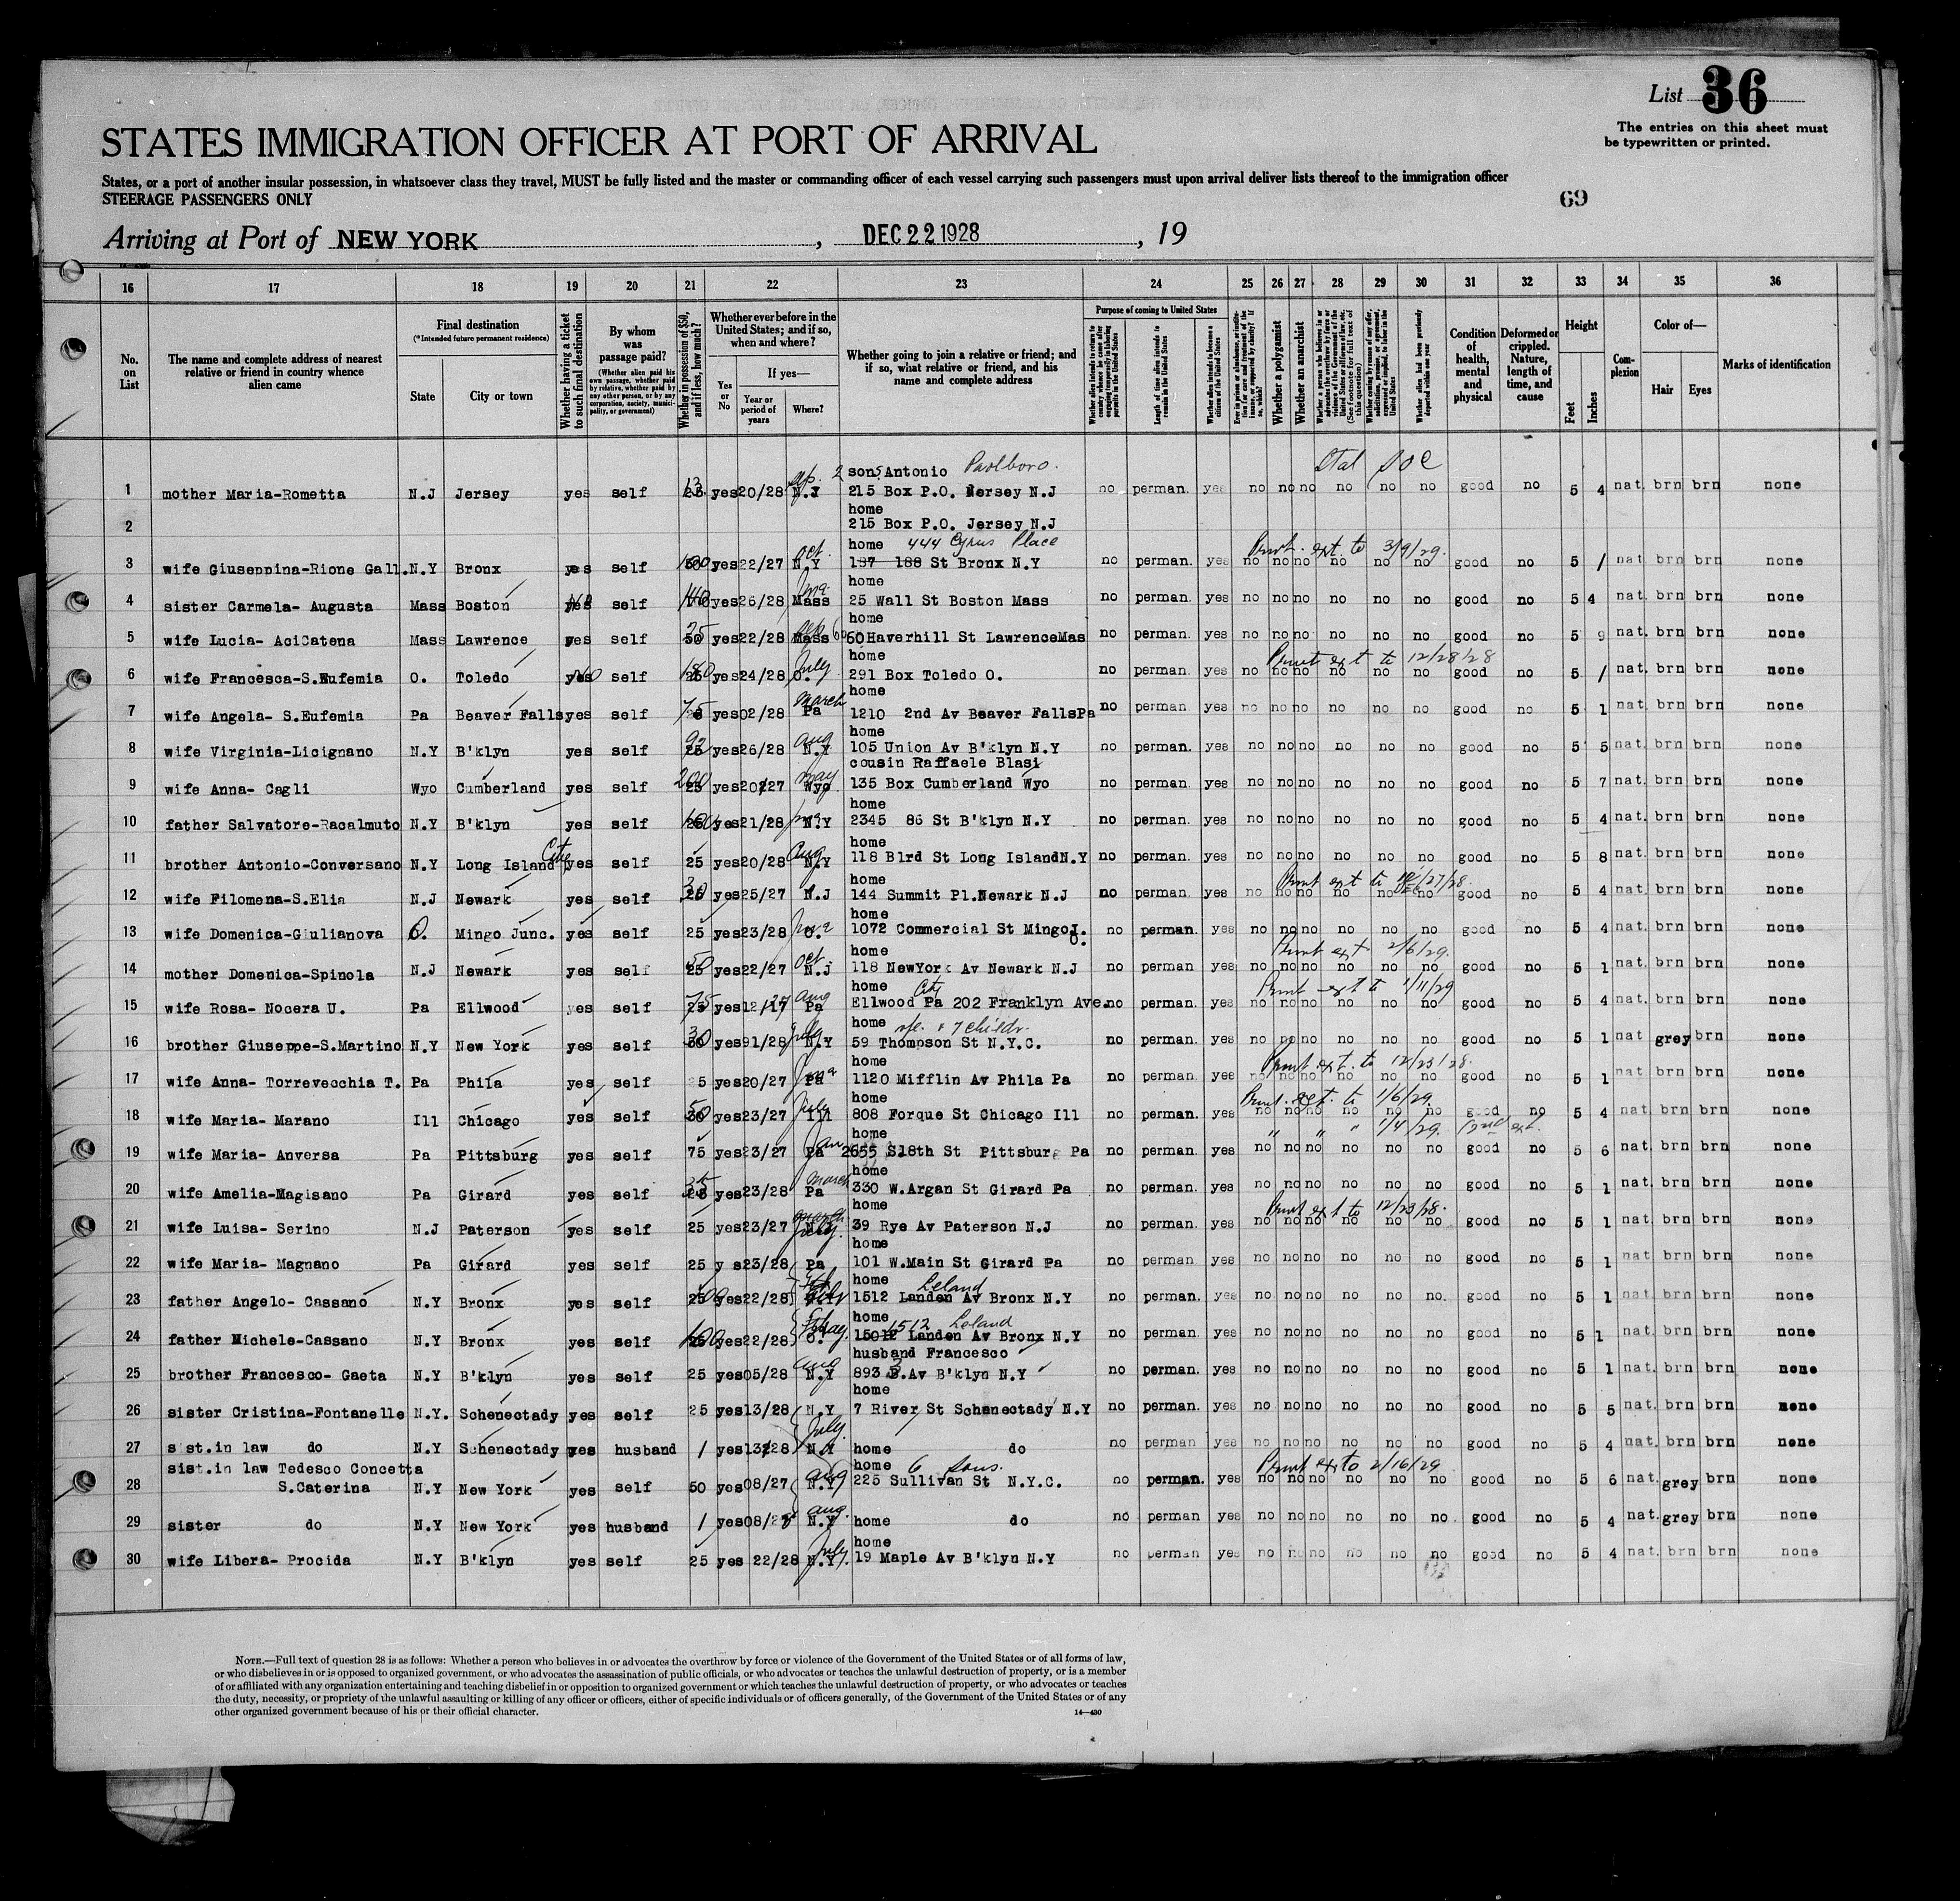 List 36
The entries on this sheet must
be typewritten or printed.
STATES IMMIGRATION OFFICER AT PORT OF ARRIVAL
States, or a port of another insular possession, in whatsoever class they travel, MUST be fully listed and the master or commanding officer of each vessel carrying such passengers must upon arrival deliver lists thereof to the immigration officer
STEERAGE PASSENGERS ONLY
69
Arriving at Port of NEW YORK, DEC 22 1928, 19
16 17 18 19 20 21 22 23 24 25 26 27 28 29 30 31 32 33 34 35 36
No. on List
The name and complete address of nearest relative or friend in country whence alien came
Final destination
(*Intended future permanent residence)
State
City or town
Whether having a ticket to such final destination
By whom was passage paid?
(Whether alien paid his own passage, whether paid by relative, whether paid by any other person, or by any corporation, society, municipality, or government)
Whether in possession of $50, and if less, how much?
Whether ever before in the United States; and if so, when and where?
Yes or No
If yes—
Year or period of years
Where?
Whether going to join a relative or friend; and if so, what relative or friend, and his name and complete address
Purpose of coming to United States
Length of time alien intends to remain in the United States
Whether alien intends to become a citizen of the United States
Whether a polygamist
Whether an anarchist
Condition of health, mental and physical
Deformed or crippled. Nature, length of time, and cause
Height
Feet
Inches
Complexion
Color of—
Hair
Eyes
Marks of identification
sons Antonio
1 mother Maria-Rometta N.J Jersey yes self yes 20/28 N.J 215 Box P.O. Jersey N.J no perman. yes no no no no no no good no 5 4 nat. brn brn none
home
2 215 Box P.O. Jersey N.J
home 444 Cyrus Place Oct. Permt. ext. to 3/9/29.
3 wife Giuseppina-Rione Gall. N.Y Bronx yes self yes 22/27 N.Y 187 188 St Bronx N.Y no perman. yes no no no no no no good no 5 / nat brn brn none
home
4 sister Carmela- Augusta Mass Boston self yes 26/28 Mass 25 Wall St Boston Mass no perman. yes no no no no no no good no 5 4 nat. brn brn none
home
5 wife Lucia- AciCatena Mass Lawrence yes self yes 22/28 Mass 60 Haverhill St LawrenceMas no perman. yes no no no no no no good no 5 9 nat. brn brn none
home July Permt ext to 12/28/28
6 wife Francesca-S.Eufemia O. Toledo self yes 24/28 O. 291 Box Toledo O. no perman. yes no no no no no no good no 5 / nat. brn brn none
home March
7 wife Angela- S.Eufemia Pa Beaver Falls yes self yes 02/28 Pa 1210 2nd Av Beaver FallsPa no perman yes no no no no no no good no 5 1 nat. brn brn none
home Aug
8 wife Virginia-Licignano N.Y B'klyn yes self yes 26/28 N.Y 105 Union Av B'klyn N.Y no perman. yes no no no no no no good no 5 5 nat. brn brn none
cousin Raffaele Blasi May
9 wife Anna- Cagli Wyo Cumberland yes self yes 20/27 Wyo 135 Box Cumberland Wyo no perman. yes no no no no no no good no 5 7 nat. brn brn none
home
10 father Salvatore-Racalmuto N.Y B'klyn yes self yes 21/28 N.Y 2345 86 St B'klyn N.Y no perman. yes no no no no no no good no 5 4 nat. brn brn none
home City Aug
11 brother Antonio-Conversano N.Y Long Island yes self 25 yes 20/28 N.Y 118 Blrd St Long IslandN.Y no perman. yes no no no no no no good no 5 8 nat. brn brn none
home Permt ext to
12 wife Filomena-S.Elia N.J Newark yes self yes 25/27 N.J 144 Summit Pl.Newark N.J no perman. yes no no no no no no good no 5 4 nat. brn brn none
home
13 wife Domenica-Giulianova O. Mingo Junc. yes self 25 yes 23/28 O. 1072 Commercial St MingoJ. O. no perman. yes no no no no no no good no 5 4 nat. brn brn none
home Oct. Permt ext 2/6/29.
14 mother Domenica-Spinola N.J Newark yes self yes 22/27 N.J 118 NewYork Av Newark N.J no perman. yes no no no no no no good no 5 1 nat. brn brn none
home City Aug Permt ext to 1/11/29
15 wife Rosa- Nocera U. Pa Ellwood yes self yes Pa Ellwood Pa 202 Franklyn Ave. no perman. yes no no no no no no good no 5 4 nat. brn brn none
home & 7 childr. July
16 brother Giuseppe-S.Martino N.Y New York yes self yes 91/28 N.Y 59 Thompson St N.Y.C. no perman. yes no no no no no no good no 5 1 nat grey brn none
home Permt ext. to 12/23/28.
17 wife Anna- Torrevecchia T. Pa Phila yes self 5 yes 20/27 Pa 1120 Mifflin Av Phila Pa no perman. yes no no no no no no good no 5 1 nat brn brn none
home July Permt. ext. to 1/6/29.
18 wife Maria- Marano Ill Chicago yes self yes 23/27 Ill 808 Forque St Chicago Ill no perman. yes no no no no no no good no 5 4 nat. brn brn none
home " " " 1/4/29. (2nd ext.
19 wife Maria- Anversa Pa Pittsburg yes self 75 yes 23/27 Pa 2655 S18th St Pittsburg Pa no perman. yes no no no no no no good no 5 6 nat. brn brn none
home March
20 wife Amelia-Magisano Pa Girard yes self yes 23/28 Pa 330 W.Argan St Girard Pa no perman. yes no no no no no no good no 5 1 nat. brn brn none
home Permt ext to 12/23/28.
21 wife Luisa- Serino N.J Paterson yes self 25 yes 23/27 N.J 39 Rye Av Paterson N.J no perman. yes no no no no no no good no 5 1 nat. brn brn none
home
22 wife Maria- Magnano Pa Girard yes self 25 y s 23/28 Pa 101 W.Main St Girard Pa no perman yes no no no no no no good no 5 1 nat brn brn none
home Leland
23 father Angelo- Cassano N.Y Bronx yes self yes 22/28 N.Y 1512 Landen Av Bronx N.Y no perman. yes no no no no no no. good no 5 1 nat brn brn none
home 1512 Leland
24 father Michele-Cassano N.Y Bronx yes self yes 22/28 O. Landen Av Bronx N.Y no perman. yes no no no no no no good no 5 1 nat. brn brn none
husband Francesco Aug
25 brother Francesco- Gaeta N.Y B'klyn yes self 25 yes 05/28 N.Y 893 3.Av B'klyn N.Y no perman. yes no no no no no no good no 5 1 nat. brn brn none
home
26 sister Cristina-Fontanelle N.Y. Schenectady yes self 25 yes 13/28 N.Y 7 River St Schenectady N.Y no perman. yes no no no no no no good no 5 5 nat. brn brn none
July
27 sist.in law do N.Y Schenectady yes husband / yes 13/28 N.Y home do no perman yes no no no no no no good no 5 4 nat. brn brn none
sist.in law Tedesco Concetta home 6 sons. Permt ext to 2/16/29
28 S.Caterina N.Y New York yes self 50 yes 08/27 N.Y 225 Sullivan St N.Y.C. no perman. yes no no no no no no good no 5 6 nat. grey brn none
Aug.
29 sister do N.Y New York yes husband / yes N.Y home do no perman yes no no no no no no good no 5 4 nat. grey brn none
home July
30 wife Libera- Procida N.Y B'klyn yes self 25 yes 22/28 N.Y. 19 Maple Av B'klyn N.Y no perman yes no no no no no no good no 5 4 nat. brn brn none
NOTE.—Full text of question 28 is as follows: Whether a person who believes in or advocates the overthrow by force or violence of the Government of the United States or of all forms of law,
or who disbelieves in or is opposed to organized government, or who advocates the assassination of public officials, or who advocates or teaches the unlawful destruction of property, or is a member
of or affiliated with any organization entertaining and teaching disbelief in or opposition to organized government or which teaches the unlawful destruction of property, or who advocates or teaches
the duty, necessity, or propriety of the unlawful assaulting or killing of any officer or officers, either of specific individuals or of officers generally, of the Government of the United States or of any
other organized government because of his or their official character.
14—430